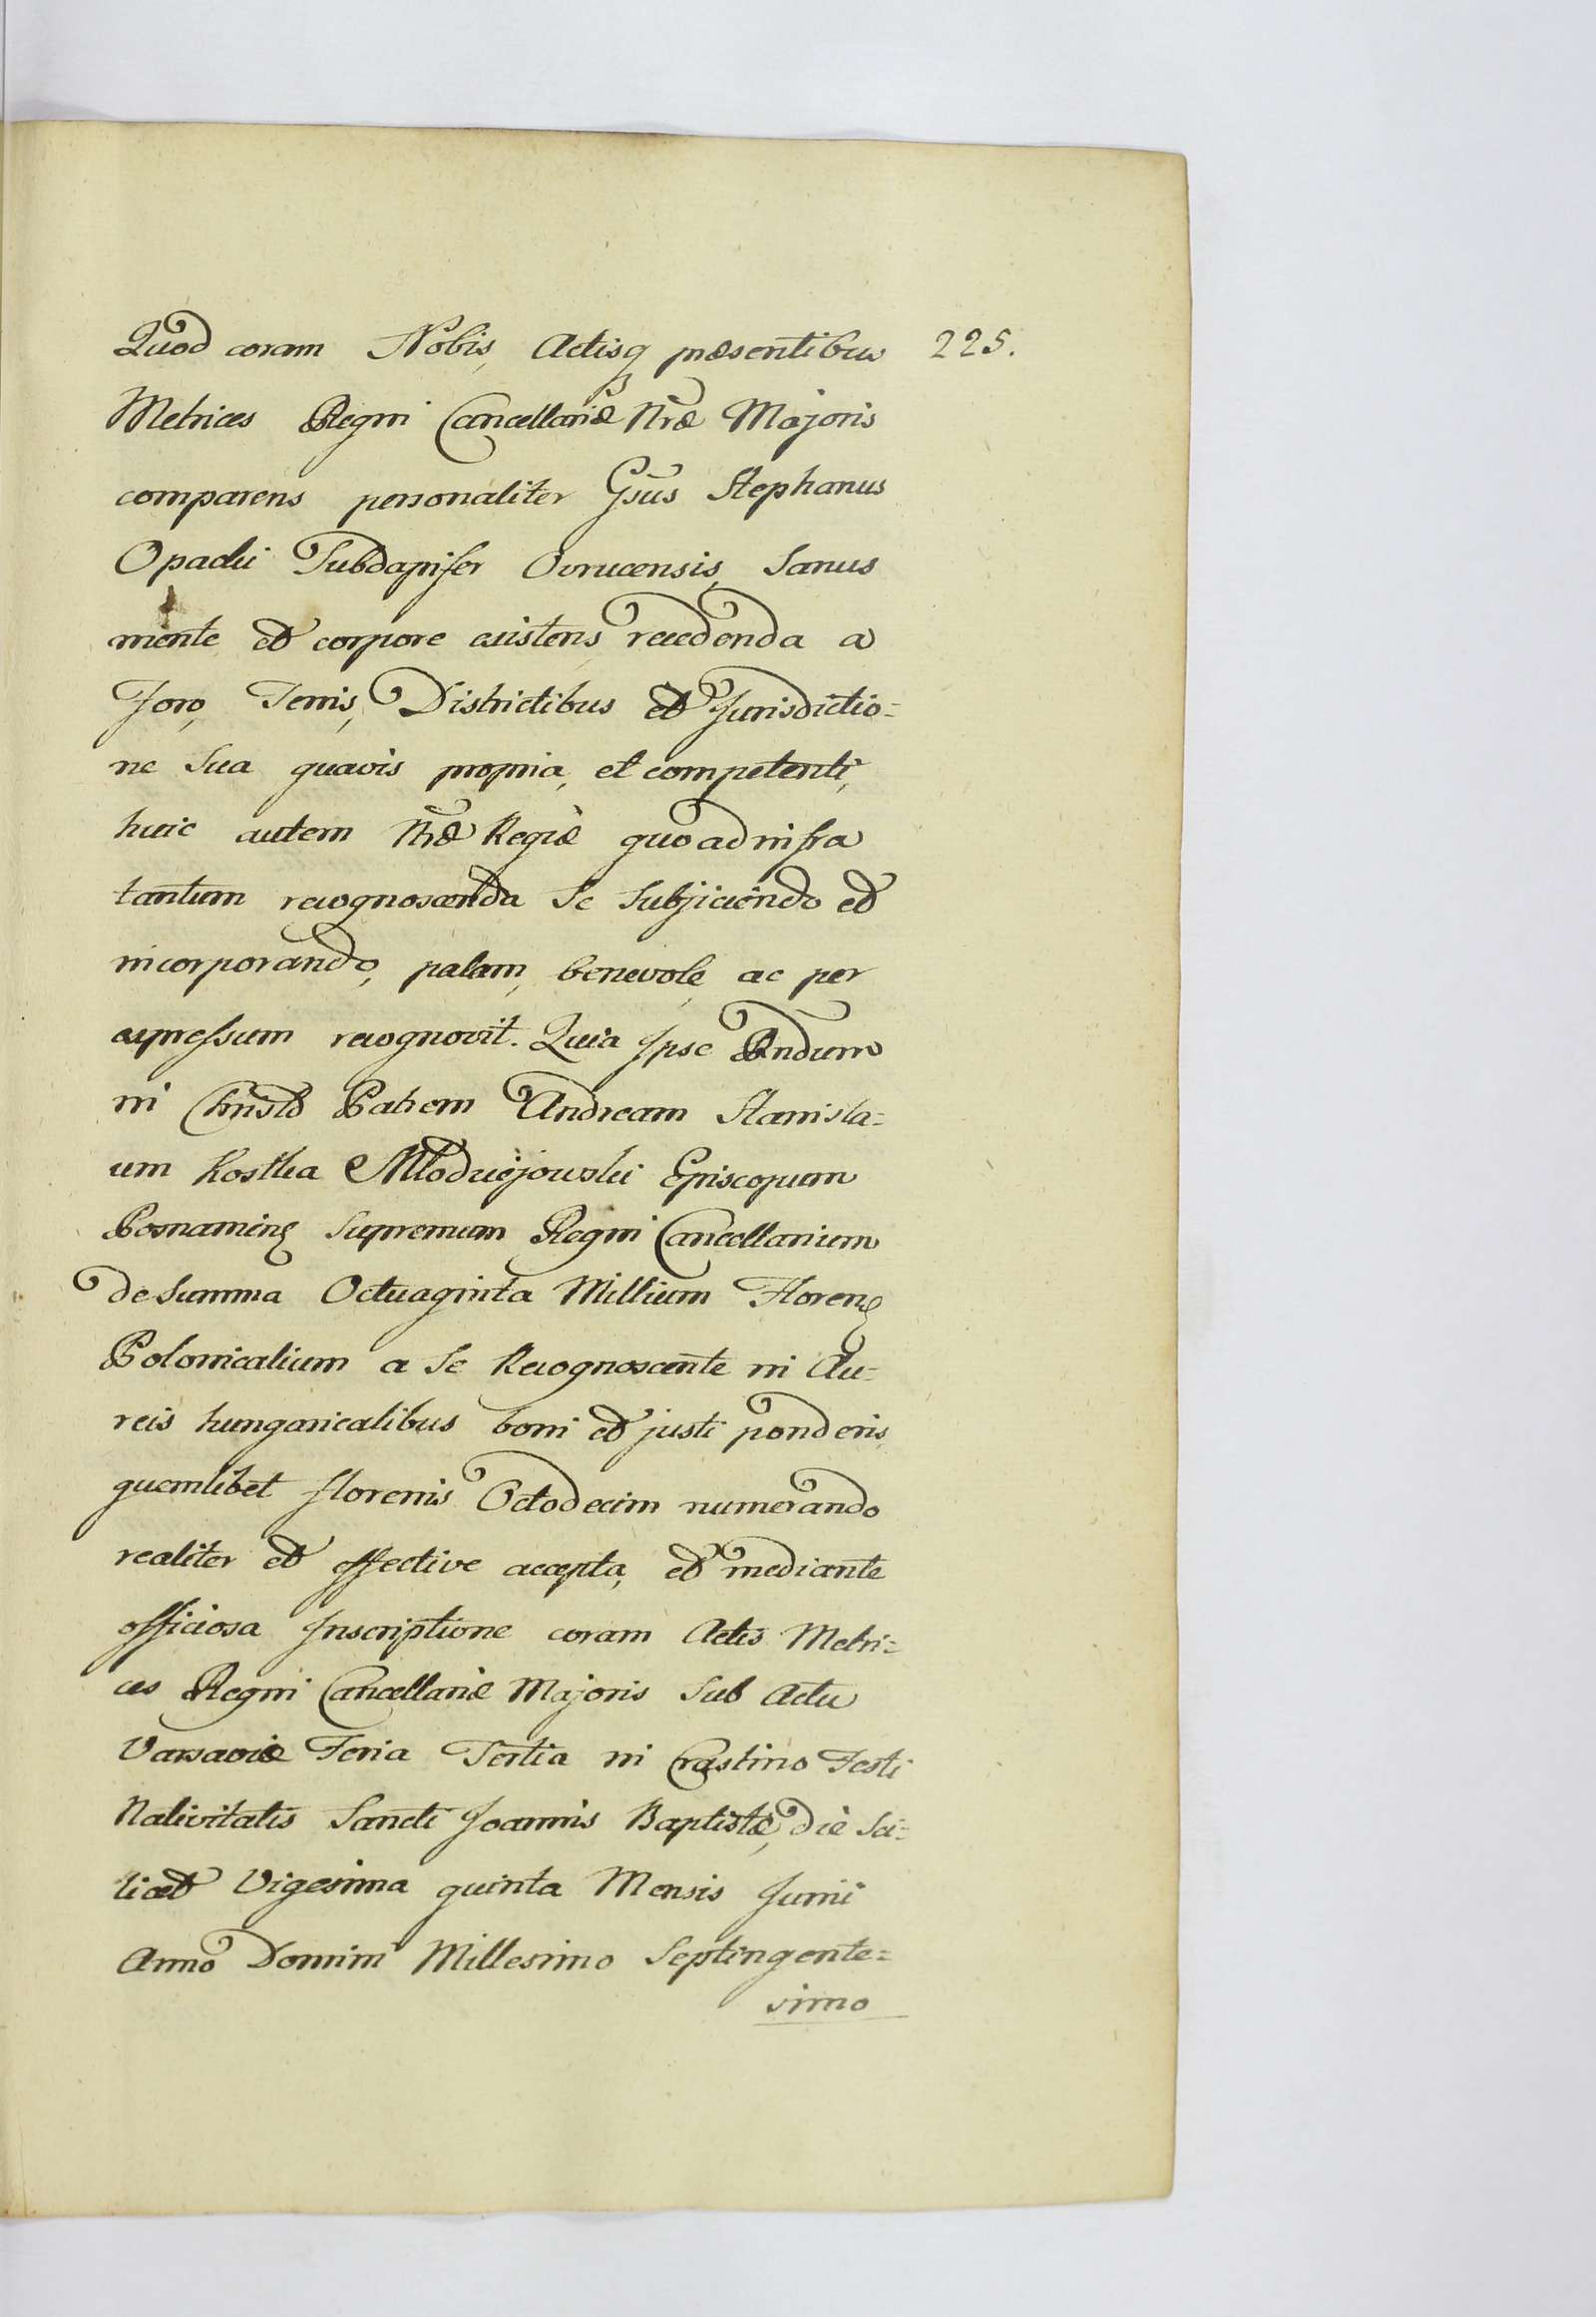 Quod coram Nobis, Actisq præsentibus 225.
Metrices Regni Cancellariæ Nræ Majoris
comparens personaliter Gsus Stephanus
Opacki Subdapifer Ovrucensis, Sanus
mente et corpore existens recedendo a
Foro, Terris, Districtibus et Jurisdictio=
ne Sua quavis propria, et competenti,
huic autem Nræ Regiæ quo ad infra
tantum recognoscenda Se Subjiciendo et
incorporando, palam, benevole, ac per
expressum recognovit. Quia Ipse Rndum
in Christo Patrem Andream Stanisla=
um Kostka Młodziejowski Episcopum
Posnanien Supremum Regni Cancellarium
de Summa Octuaginta Millium Floren
Polonicalium a Se Recognoscente in Au=
reis hungaricalibus boni et justi ponderis,
quemlibet florenis Octodecim numerando
realiter et effective accepta, et mediante
officiosa Inscriptione coram Actis Metri=
ces Regni Cancellariæ Majoris Sub Actu
Varsaviæ Feria Tertia in Crastino Festi
Nativitatis Sancti Joannis Baptistæ, die Sci=
licet Vigesima quinta Mensis Junii
Anno Domini Millesimo Septingente=
simo